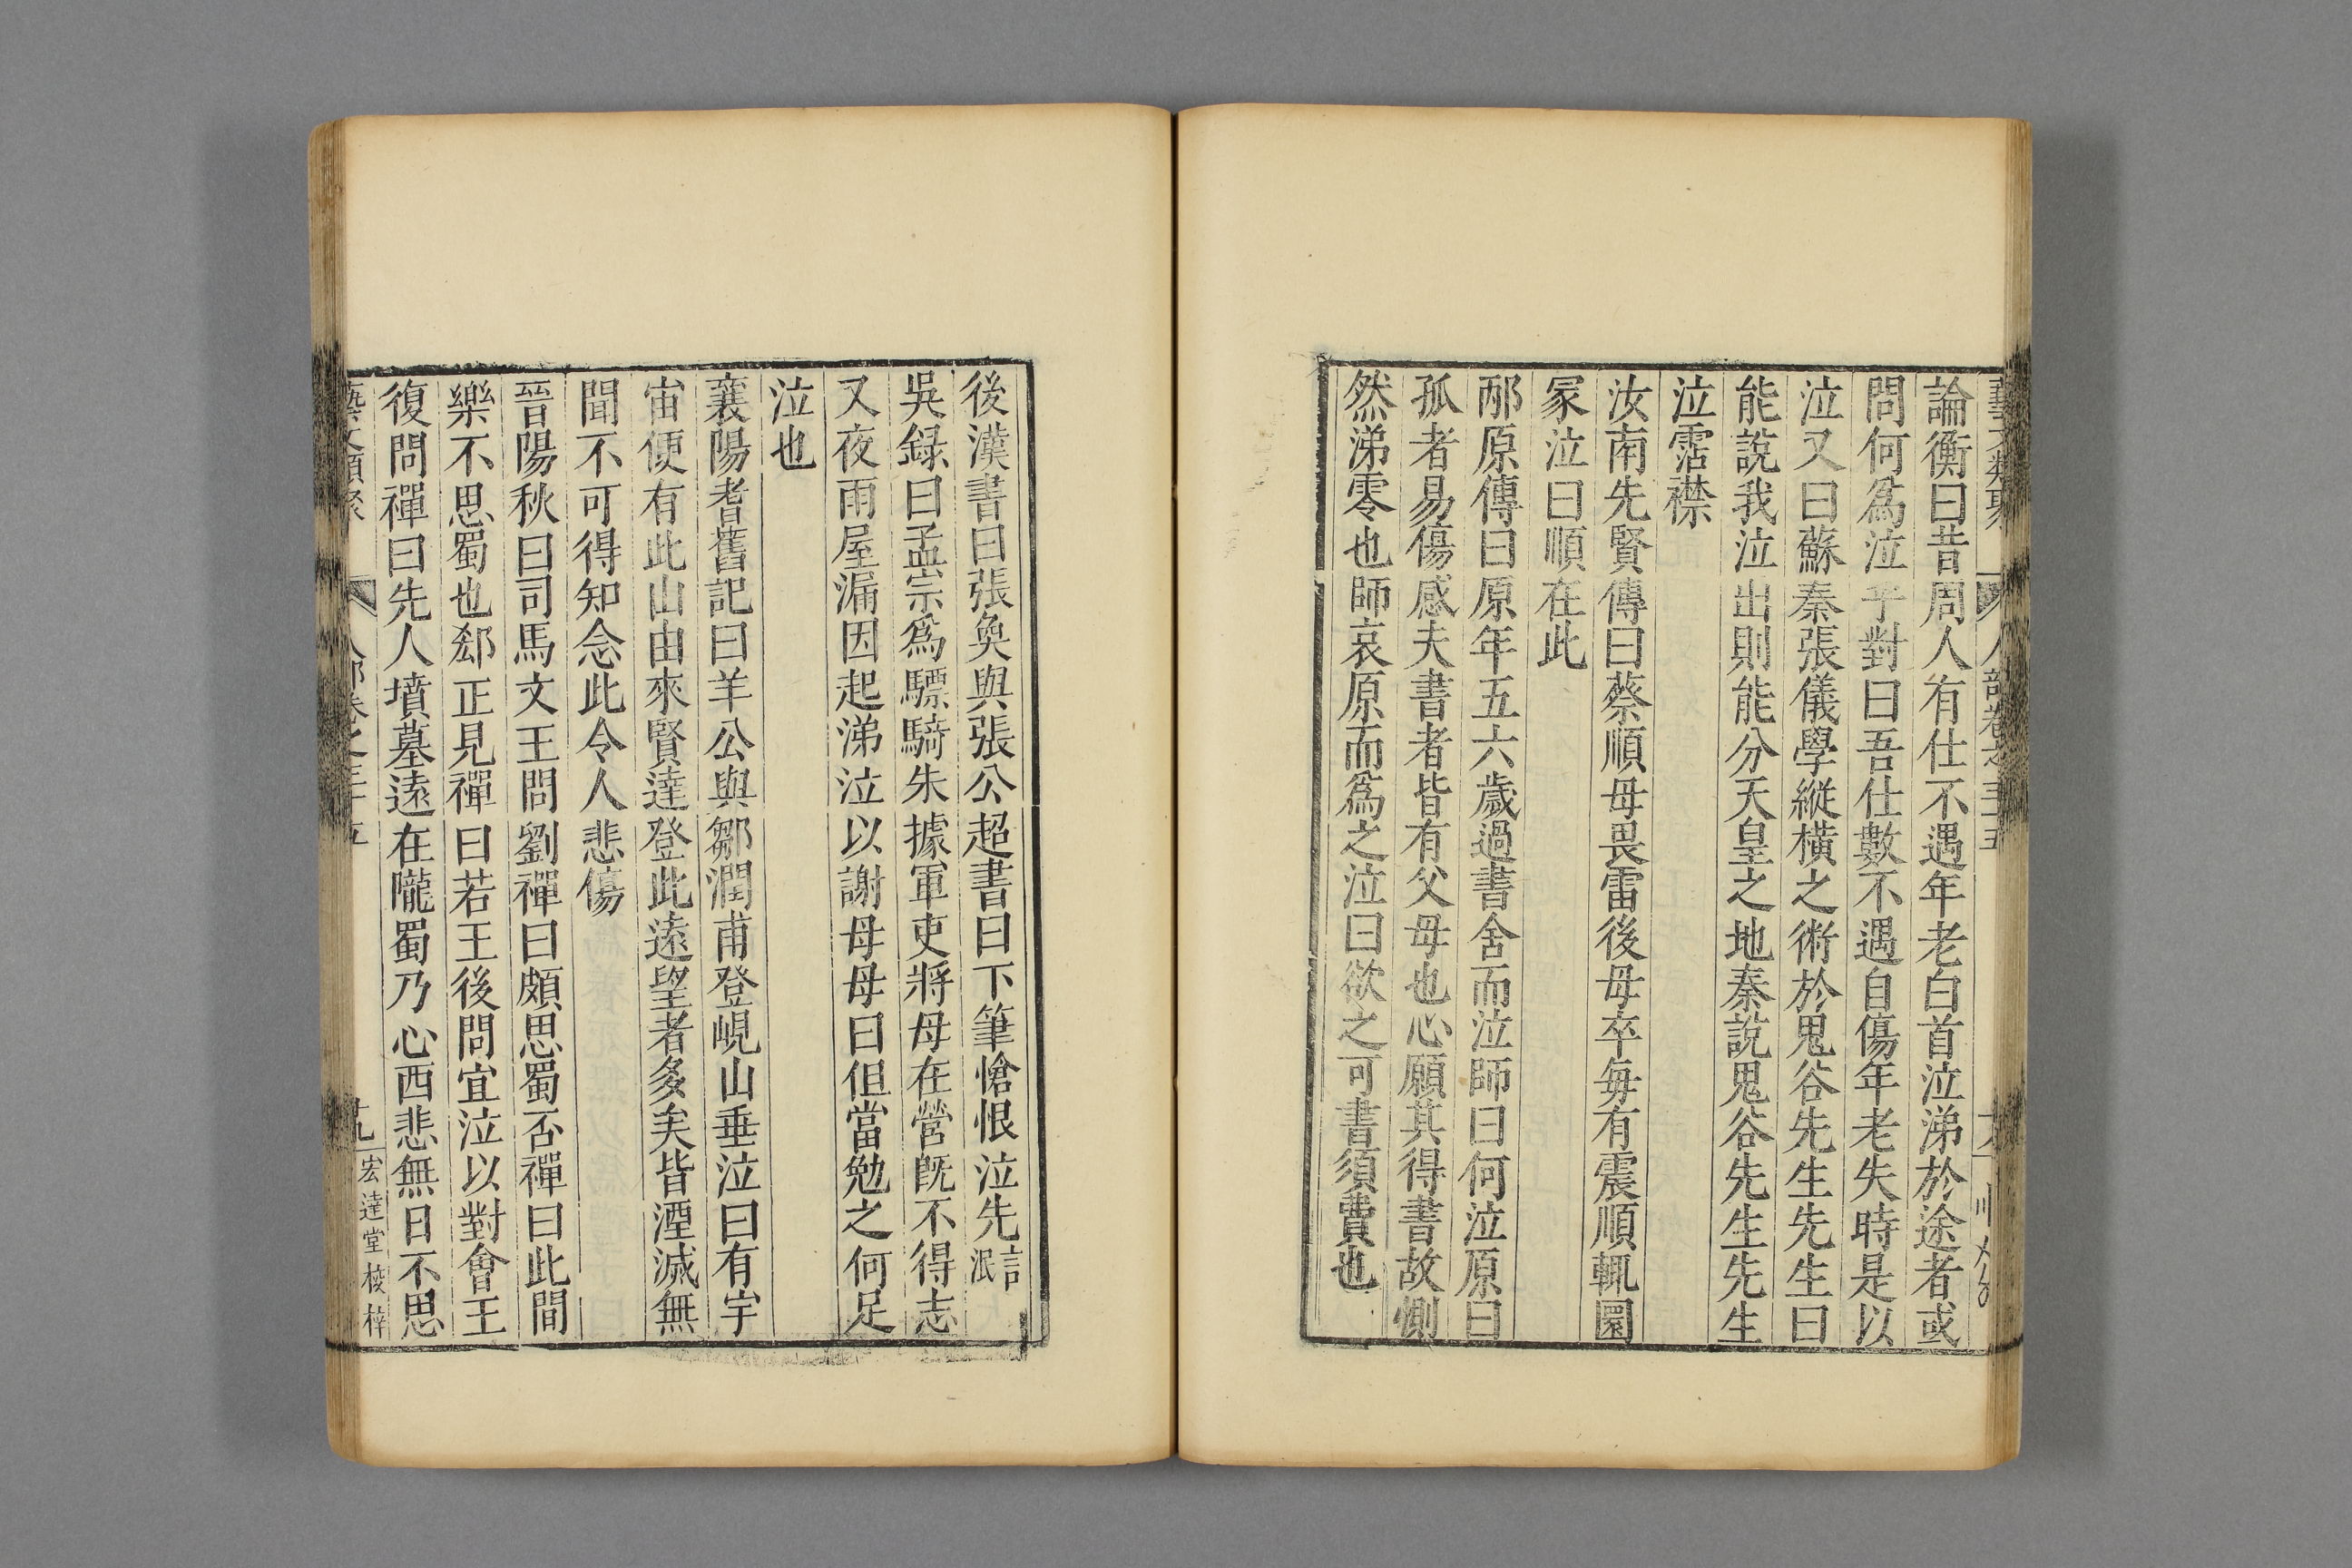 論衡曰昔周人有仕不遇年老白首泣涕於途者或
問何爲泣乎對曰吾仕數不遇自傷年老失時是以
泣又曰蘇秦張儀學縱橫之術於鬼谷先生先生曰
能說我泣出則能分天皇之地秦說鬼谷先生先生
泣霑襟
汝南先賢傳曰蔡順母畏雷後母卒每有震順輒圜
冢泣曰順在此
邴原傳曰原年五六歲過書舍而泣師曰何泣原曰
孤者易傷感夫書者皆有父母也心願其得書故惻
然涕零也師哀原而爲之泣曰欲之可書須費也
後漢書曰張奐與張公超書曰下筆愴恨泣先言泯
吳録曰孟宗爲驃騎朱據軍吏將母在營既不得志
又夜雨屋漏因起涕泣以謝母母曰但當勉之何足
泣也
襄陽耆舊記曰羊公與鄒潤甫登峴山垂泣曰有宇
宙便有此山由來賢達登此遠望者多矣皆湮滅無
聞不可得知念此令人悲傷
晉陽秋曰司馬文王問劉禪曰頗思蜀否禪曰此間
樂不思蜀也郄正見禪曰若王後問宜泣以對會王
復問禪曰先人墳墓遠在隴蜀乃心西悲無日不思
藝文類聚 人部卷之三十五 十九 宏達堂校梓